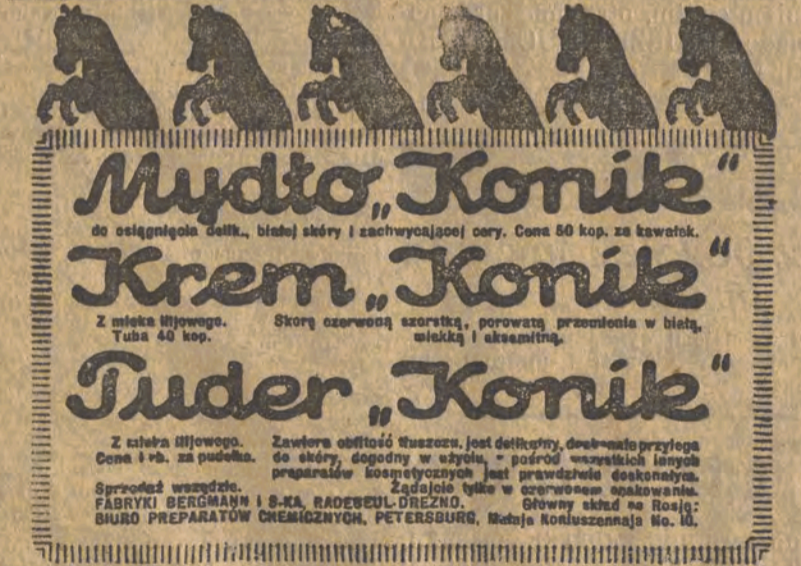 Mydło „Konik“
do osiągnięcia delik., białej skóry i zachwycającej cery. Cena 50 kop. za kawałek.
Krem „Konik“
Z mleka liljowego. Skorę czerwoną szorstką, porowatą przemienia w białą,
Tuba 40 kop. miekką i aksamitną.
Puder „Konik“
Z mleka liljowego. Zawiera obfitość tłuszczu, jest delikatny, doskonale przylega
Cena 1 rb. za pudełko. do skóry, dogodny w użyciu, pośród wszystkich innych
preparatów kosmetycznych jest prawdziwie doskonałym.
Sprzedaż wszędzie. Żądajcie tylko w czerwonem opakowaniu.
FABRYKI BERGMANN i S-KA, RADEBEUL-DREZNO. Główny skład na Rosję:
BIURO PREPARATÓW CHEMICZNYCH, PETERSBURG, Małaja Koniuszennaja No. 10.